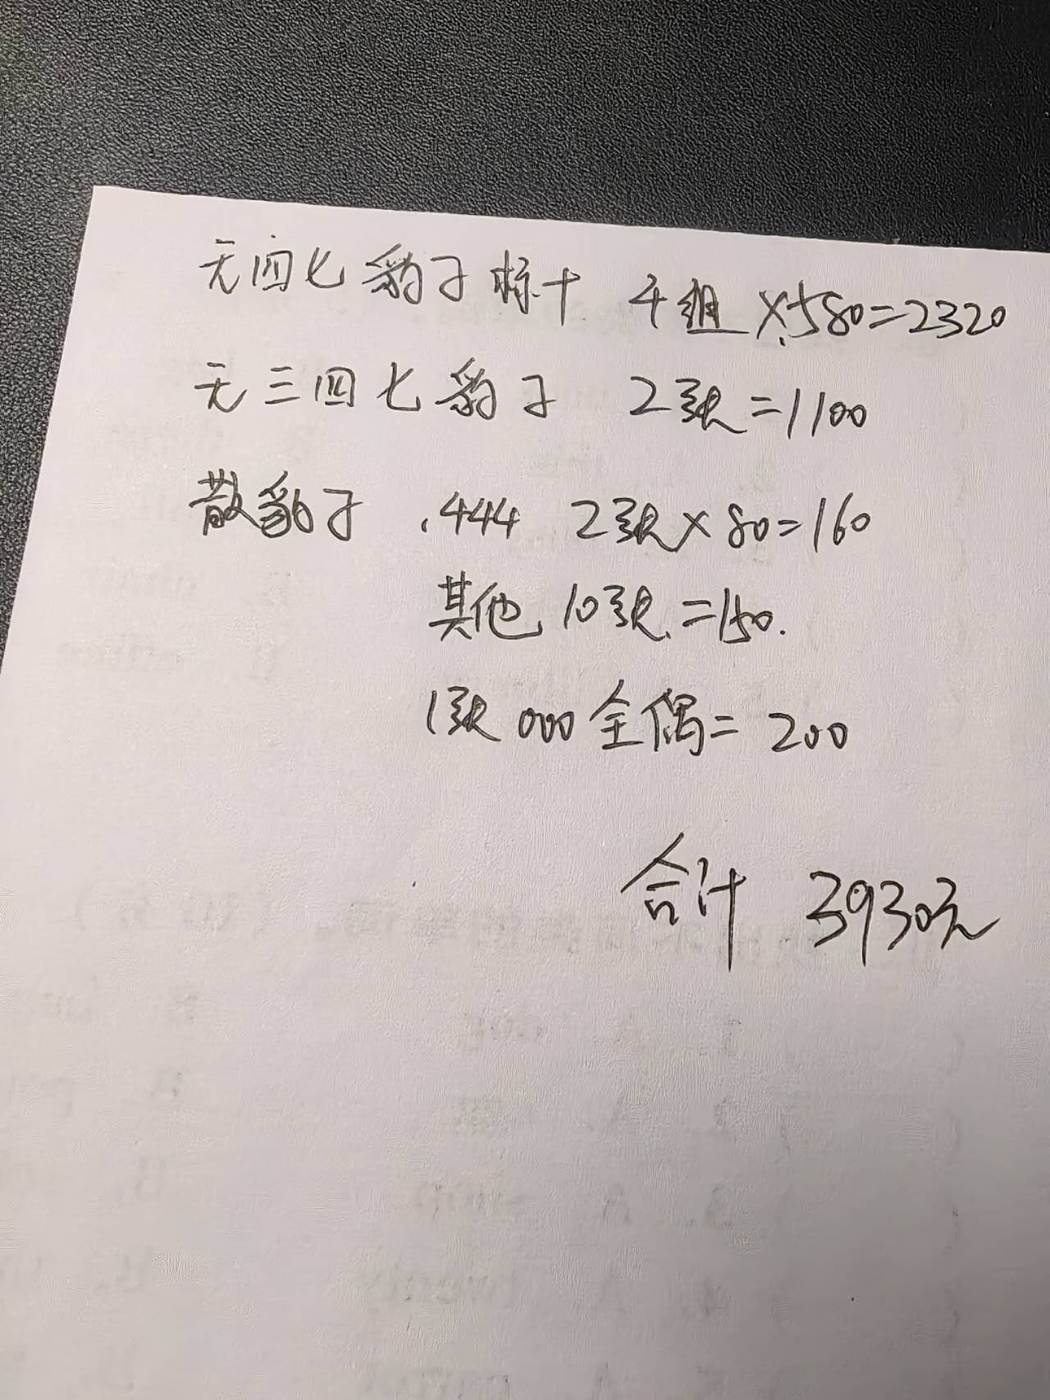 无四七豹子标十 4组×580=2320
无三四七豹子 2张=1100
散豹子 .444 2张×80=160
其他 10张.=150.
1张000全偶=200
合计 3930元